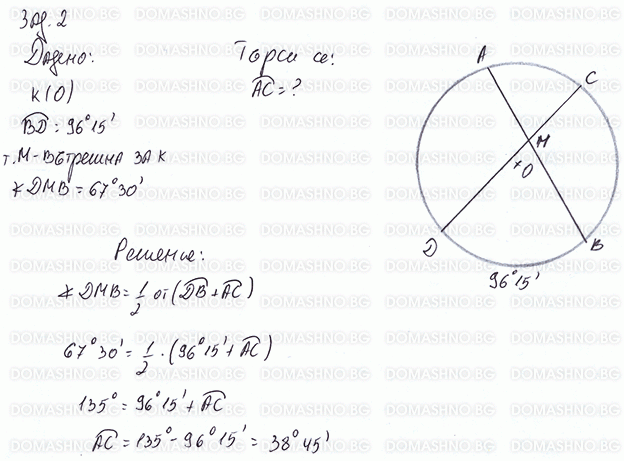 Зад. 2
Дадено:
k(O)
B͡D = 96°15'
т. M - вътрешна за k
∢DMB = 67°30'
Търси се:
A͡C = ?
A
C
M
O
D
B
96°15'
Решение:
∢DMB = 1/2 от (D͡B + A͡C)
67°30' = 1/2 . (96°15' + A͡C)
135° = 96°15' + A͡C
A͡C = 135° - 96°15' = 38°45'
DOMASHNO.BG